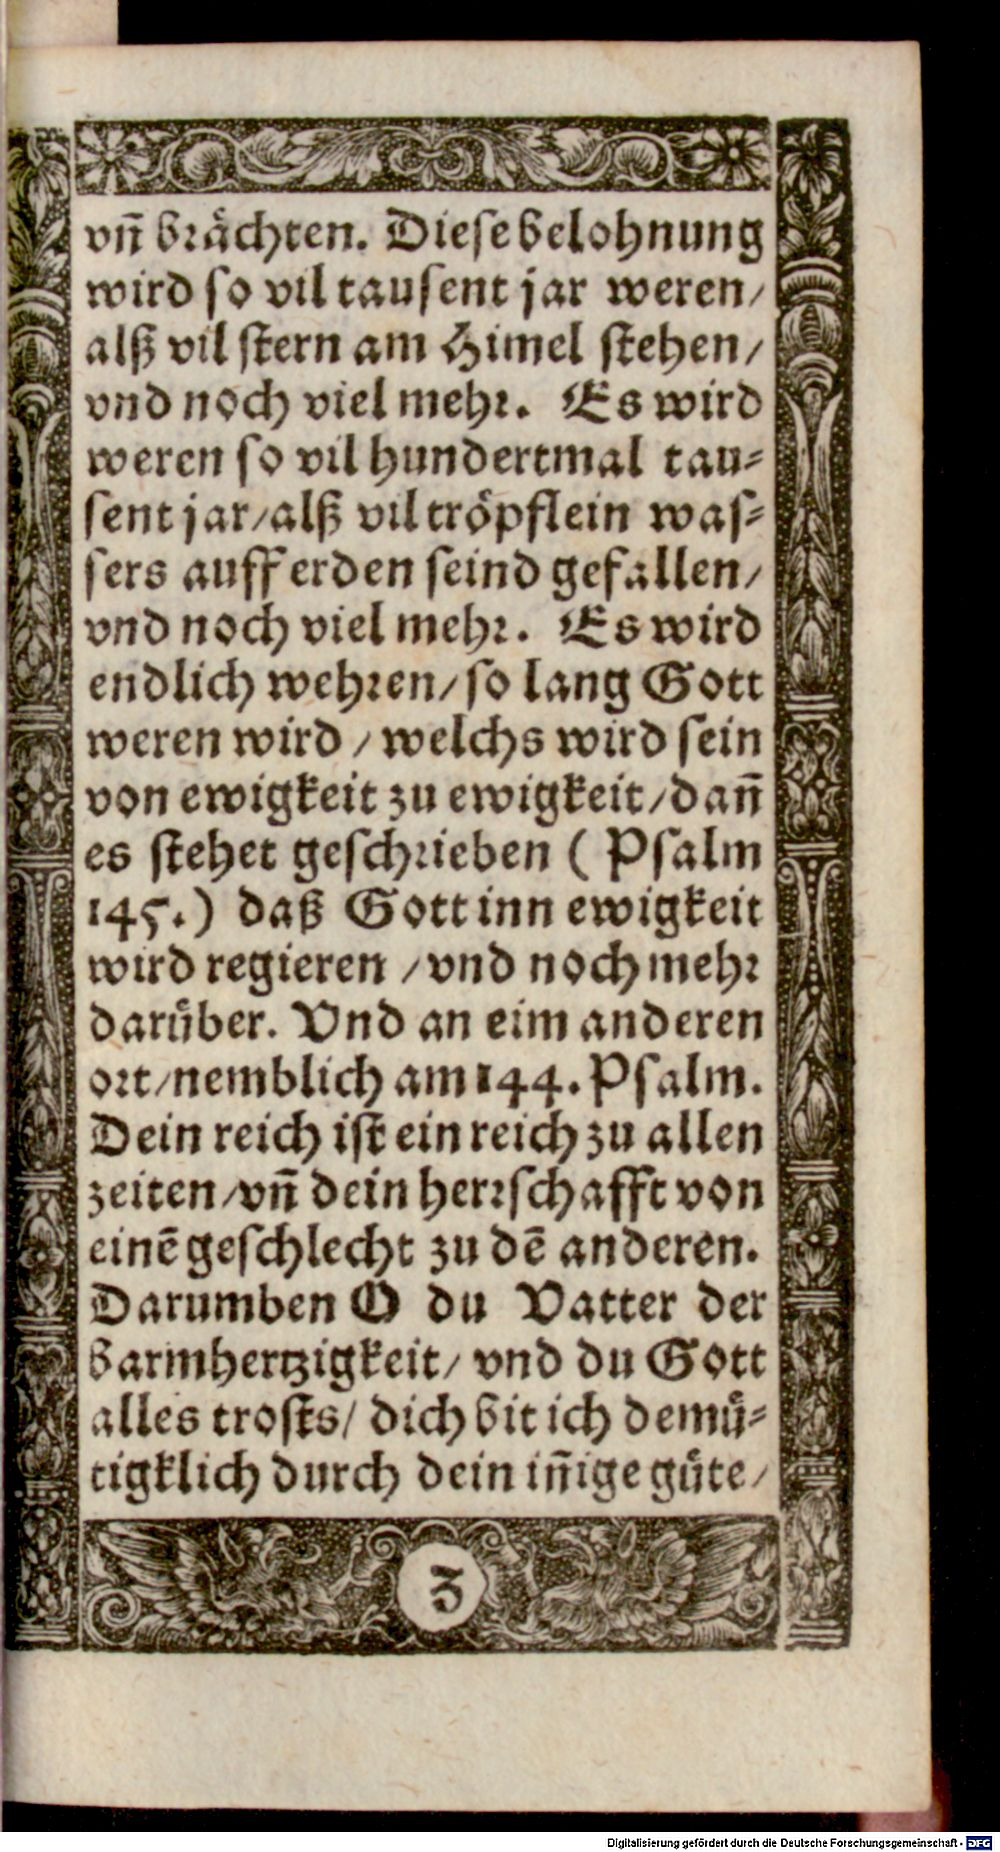 vñ brächten. Diese belohnung
wird so vil tausent jar weren/
alß vil stern am Himel stehen/
vnd noch viel mehr. Es wird
weren so vil hundertmal tau⸗
sent jar/alß vil tröpflein was⸗
sers auff erden seind gefallen/
vnd noch viel mehr. Es wird
endlich wehren/so lang Gott
weren wird/welchs wird sein
von ewigkeit zu ewigkeit/dañ
es stehet geschrieben (Psalm
145.) daß Gott inn ewigkeit
wird regieren/vnd noch mehr
darüber. Vnd an eim anderen
ort/nemblich am 144. Psalm.
Dein reich ist ein reich zu allen
zeiten/vñ dein herrschafft von
einē geschlecht zu dē anderen.
Darumben O du Vatter der
barmhertzigkeit/ vnd du Gott
alles trosts/ dich bit ich demü⸗
tigklich durch dein iñige güte/
3
Digitalisierung gefördert durch die Deutsche Forschungsgemeinschaft - DFG